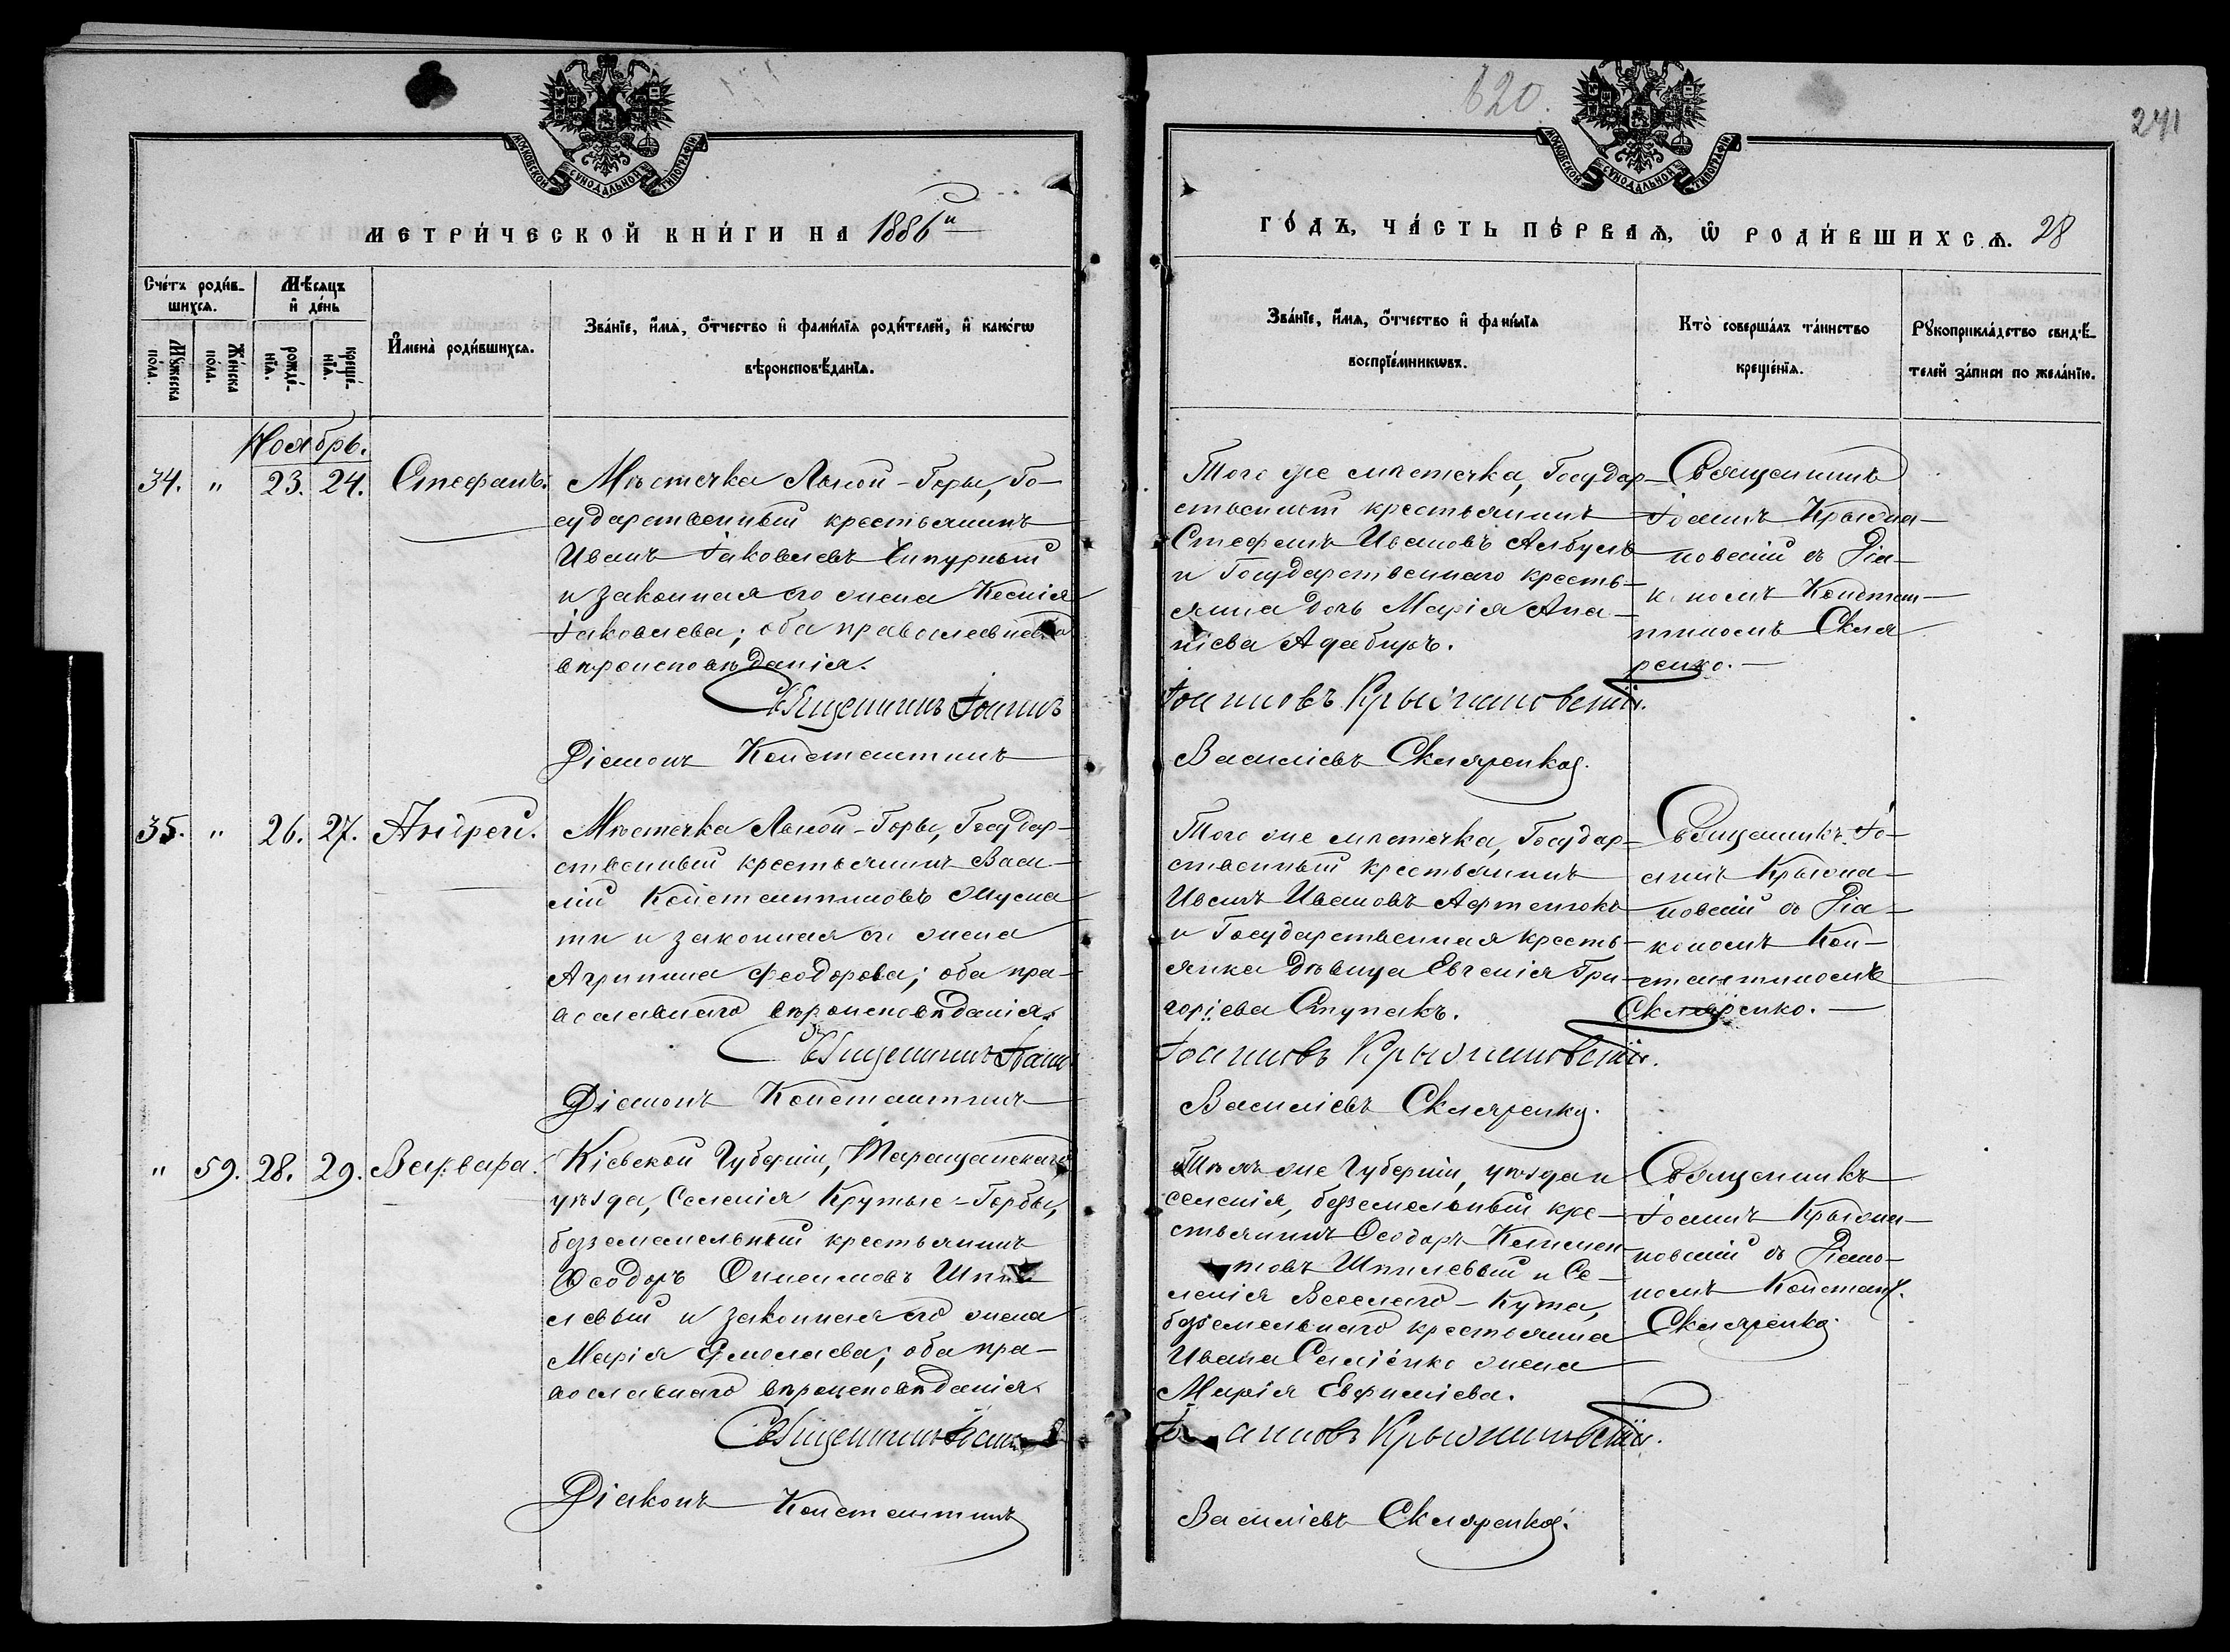 620.
241
МОСКОВСКОЙ СУНОДАЛЬНОЙ ТИПОГРАФІИ
МОСКОВСКОЙ СУНОДАЛЬНОЙ ТИПОГРАФІИ
МЕТРИ́ЧЕСКОЙ КНИ́ГИ НА 1886й
ГО́ДЪ, ЧА́СТЬ ПЕ́РВАѦ, Ѡ РОДИ́ВШИХСѦ. 28
Сче́тъ роди́в-
шихсѧ.
Мꙋ́жеска
по́ла.
Же́нска
по́ла.
Мѣ́сѧцъ
и҆ де́нь
рожде́-
нїѧ.
креще́-
нїѧ.
И҆мена̀ роди́вшихсѧ.
Зва́нїе, и҆́мѧ, ѻ҆́тчество и҆ фами́лїѧ роди́телей, и҆ како́гѡ
вѣроисповѣ́данїѧ.
Зва́нїе, и҆́мѧ, ѻ҆́тчество и҆ фами́лїѧ
воспрїе́мникѡвъ.
Кто̀ соверша́лъ та́инство
креще́нїѧ.
Рꙋкоприкла́дство свидѣ́-
телей за́писи по жела́нїю.
Ноябрь.
34. " 23. 24. Стефанъ.
Мѣстечка Лысой-Горы, Го-
сударственный крестьянинъ
Иванъ Іаковлевъ Чипурный
и законная его жена Ксенія
Іаковлева; оба православнаго
вѣроисповѣданія.
Священникъ Іоаннъ
Діаконъ Константинъ
Того же мѣстечка, Государ-
ственный крестьянинъ
Стефанъ Ивановъ Албулъ
и Государственнаго кресть-
янина дочь Марія Ана-
ніева Адабиръ.
Іоанновъ Крыжановскій.
Василіевъ Скляренко.
Священникъ
Іоаннъ Крыжа-
новскій съ Діа-
кономъ Констан-
тиномъ Скля
ренко.
35. " 26. 27. Андрей.
Мѣстечка Лысой-Горы, Государ-
ственный крестьянинъ Васи-
лій Константиновъ
и законная его жена
Агрипина Феодорова; оба пра-
вославнаго вѣроисповѣданія.
Священникъ Іоаннъ
Діаконъ Константинъ
Того же мѣстечка, Государ-
ственный крестьянинъ
Иванъ Ивановъ Афтенюкъ
и Государственная кресть-
янка дѣвица Евгенія Гри-
горіева Ступакъ.
Іоанновъ Крыжановскій.
Василіевъ Скляренко.
Священникъ Іо-
аннъ Крыжа-
новскій съ Діа-
кономъ Кон-
стантиномъ
Скляренко.
" 59. 28. 29. Варвара.
Кіевской Губерніи, Таращанскаго
уѣзда, Селенія Крутые-Горбы,
безземельный крестьянинъ
Ѳеодоръ Онисимовъ Шпи-
левый и законная его жена
Марія Ермолаева; оба пра-
вославнаго вѣроисповѣданія.
Священникъ Іоаннъ
Діаконъ Константинъ
Тѣхъ же Губерніи, уѣзда и
селенія, безземельный кре-
стьянинъ Ѳеодоръ Климен
товъ Шпилевый и Се-
ленія Веселаго-Кута,
безземельнаго крестьянина
Ивана жена
Марія Евфиміева.
Іоанновъ Крыжановскій.
Василіевъ Скляренко.
Священникъ
Іоаннъ Крыжа-
новскій съ Діако-
номъ Констант.
Скляренко.